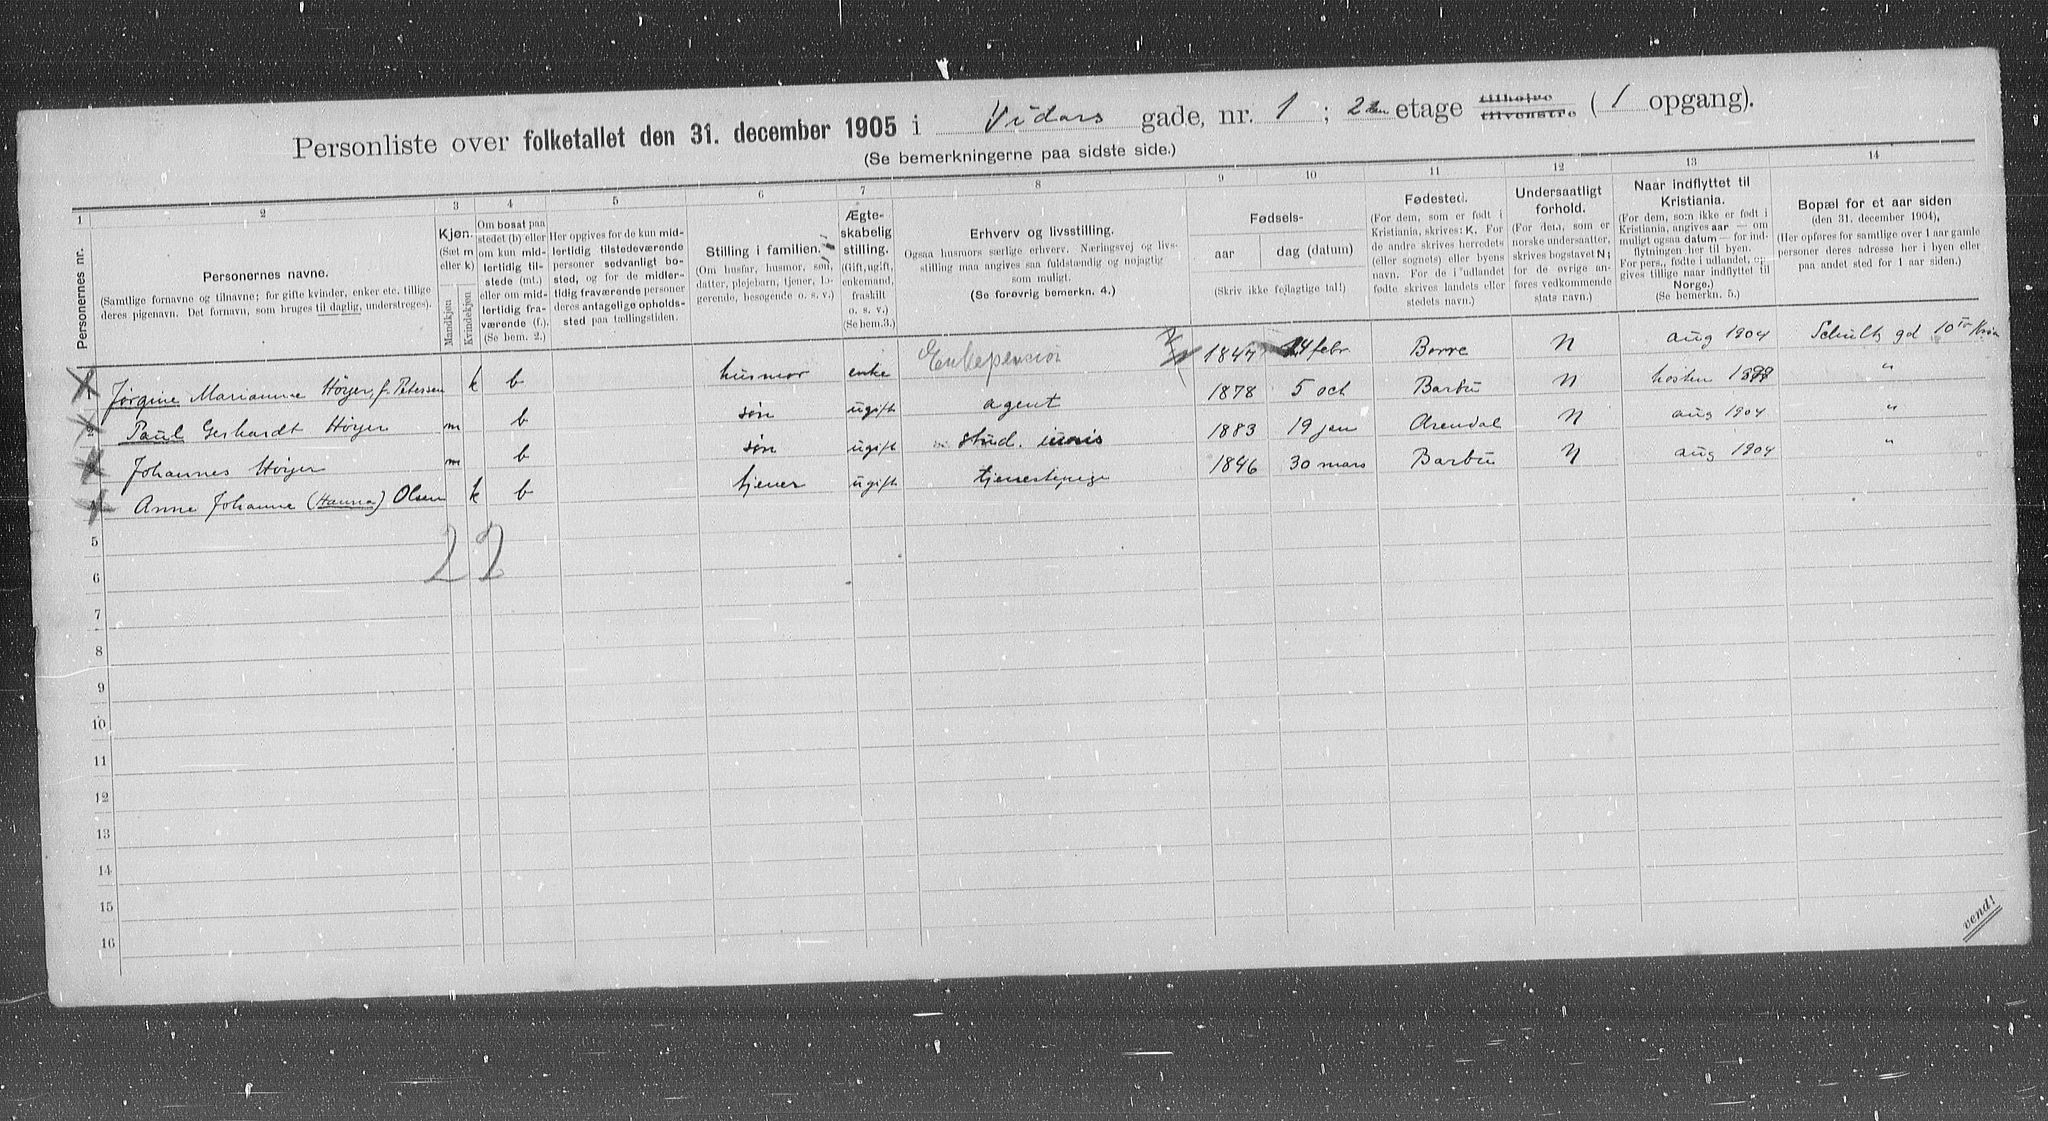 Personliste over folketallet den 31. december 1905 i Vidars gade, nr. 1 ; 2den etage tilhøire tilvenstre ( 1 opgang).
(Se bemerkningerne paa sidste side.)
1 2 3 4 5 6 7 8 9 10 11 12 13 14
Personernes nr.
Personernes navne.
(Samtlige fornavne og tilnavne; for gifte kvinder, enker etc. tillige
deres pigenavn. Det fornavn, som bruges til daglig, understreges).
Kjøn.
(Sæt m
eller k)
Mandkjøn
Kvindekjøn
Om bosat paa
stedet (b) eller
om kun mid-
lertidig til-
stede (mt.)
eller om mid-
lertidig fra-
værende (f.).
(Se bem. 2.)
Her opgives for de kun mid-
lertidig tilstedeværende
personer sedvanligt bo-
sted, og for de midler-
tidig fraværende personer
deres antagelige opholds-
sted paa tællingstiden.
Stilling i familien.
(Om husfar, husmor, søn,
datter, plejebarn, tjener, lo-
gerende, besøgende o. s. v.)
Ægte-
skabelig
stilling.
(Gift, ugift,
enkemand,
fraskilt
o. s. v.)
(Se bem.3.)
Erhverv og livsstilling.
Ogsaa husmors særlige erhverv. Næringsvej og livs-
stilling maa angives saa fuldstændig og nøjagtig
som muligt.
(Se forøvrig bemerkn. 4.)
Fødsels-
aar dag (datum)
(Skriv ikke fejlagtige tal!)
Fødested.
(For dem, som er født i
Kristiania, skrives: K. For
de andre skrives herredets
(eller sognets) eller byens
navn. For de i udlandet
fødte skrives landets eller
stedets navn.)
Undersaatligt
forhold.
(For de
norske undersaatter,
skrives bogstavet N;
for de øvrige an-
føres vedkommende
stats navn.)
Naar indflyttet til
Kristiania.
(For dem, som ikke er født i
Kristiania, angives aar — om
muligt ogsaa datum — for ind-
flytningen her til byen.
For pers., fødte i udlandet, o-
gives tillige naar indflyttet til
Norge.)
(Se bemerkn. 5.)
Bopæl for et aar siden
(den 31. december 1904),
(Her opføres for samtlige over 1 aar gamle
personer deres adresse her i byen eller
paa andet sted for 1 aar siden.)
1 Jørgine Marianne Höyer, f. Petersen k b husmor enke Enkepension 1847 14 febr Borre N aug 1904 Schultz gd 10 Kria
2 Paul Gerhardt Höyer m b søn ugift agent 1878 5 oct Barbu N høsten 1899 "
Johannes Höyer m b søn ugift stud. 1883 19 jan Arendal N aug 1904 "
Anne Johanne (Hanna) Olsen k b tjener ugift tjenestepige 1846 30 mars Barbu N aug 1904 "
2 2
5
6
7
8
9
10
11
12
13
14
15
16
vend!